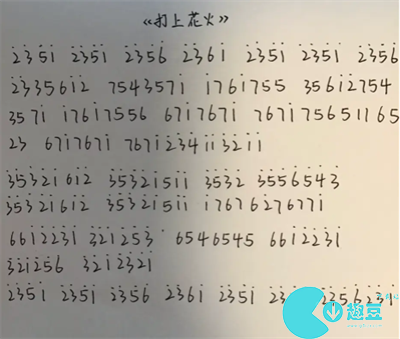 《打上花火》
2351 2351 2356 2361 2351 2351 2356
2335612 7543571 1761755 35612754
3571 17617556 6717671 7671756511 65
23 6717671 7671234113211
35321612 35321511 3532 3556543
35321612 35321511 17676276771
6612231 321253 6546545 6612231
321256 3212321
2351 2351 2356 2361 2351 23 2356231
趣豆